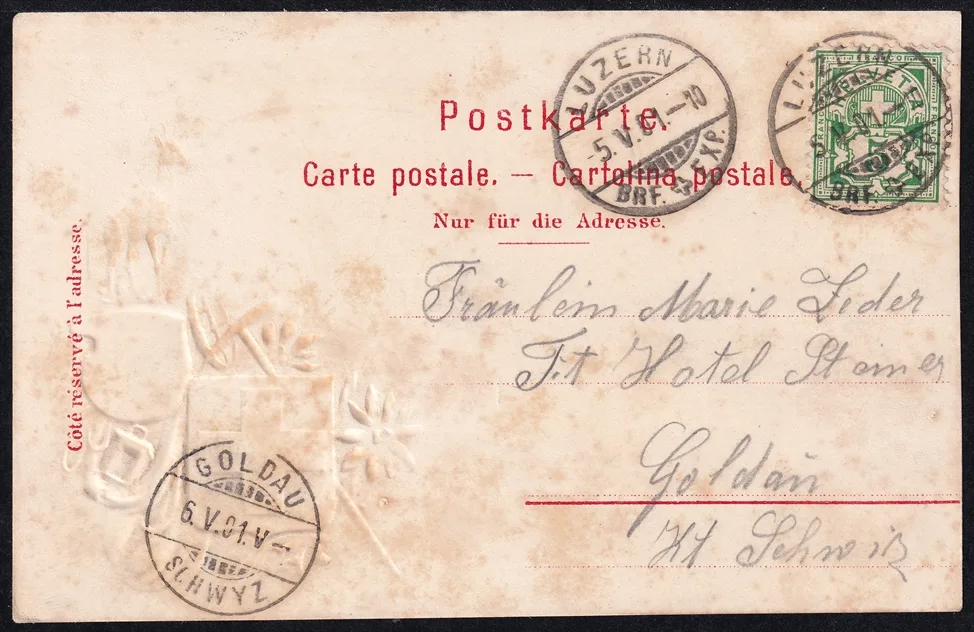 Postkarte.
Carte postale. — Cartolina postale.
Nur für die Adresse.
Côté réservé à l'adresse.
LUZERN
-5.V.01.-10
BRF. EXP.
LUZERN
V.01.
BRF. EXP.
HELVETIA
FRANCO
FRANCO
Fräulein Marie Leder
Hotel Steiner
Goldau
Kt Schwiz
GOLDAU
6.V.01.V-
SCHWYZ